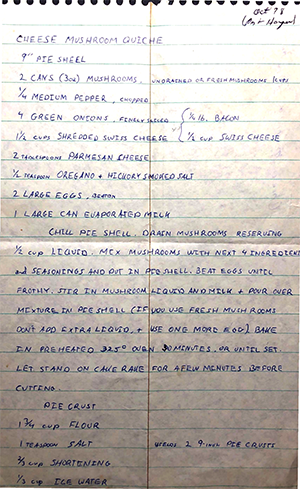 Oct 78
CHEESE MUSHROOM QUICHE
9" PIE SHELL
2 CANS (3oz) MUSHROOMS, UNDRAINED OR FRESH MUSHROOMS
1/4 MEDIUM PEPPER, CHOPPED
4 GREEN ONIONS, FINELY SLICED (1/2 lb. BACON
1 1/2 CUPS SHREDDED SWISS CHEESE 1/2 CUP SWISS CHEESE
2 TABLESPOONS PARMESAN CHEESE
1/2 TEASPOON OREGANO + HICKORY SMOKED SALT
2 LARGE EGGS, BEATEN
1 LARGE CAN EVAPORATED MILK
CHILL PIE SHELL. DRAIN MUSHROOMS RESERVING
1/2 CUP LIQUID. MIX MUSHROOMS WITH NEXT 4 INGREDIENT
and SEASONINGS AND PUT IN PIE SHELL. BEAT EGGS UNTIL
FROTHY. STIR IN MUSHROOM LIQUID AND MILK + POUR OVER
MIXTURE IN PIE SHELL (IF YOU USE FRESH MUSHROOMS
DON'T ADD EXTRA LIQUID, + USE ONE MORE EGG) BAKE
IN PREHEATED 325° OVEN MINUTES, OR UNTIL SET.
LET STAND ON CAKE RAKE FOR A FEW MINUTES BEFORE
CUTTING.
PIE CRUST
1 3/4 CUP FLOUR
1 TEASPOON SALT 2 9-INCH PIE CRUSTS
2/3 CUP SHORTENING
1/3 CUP ICE WATER